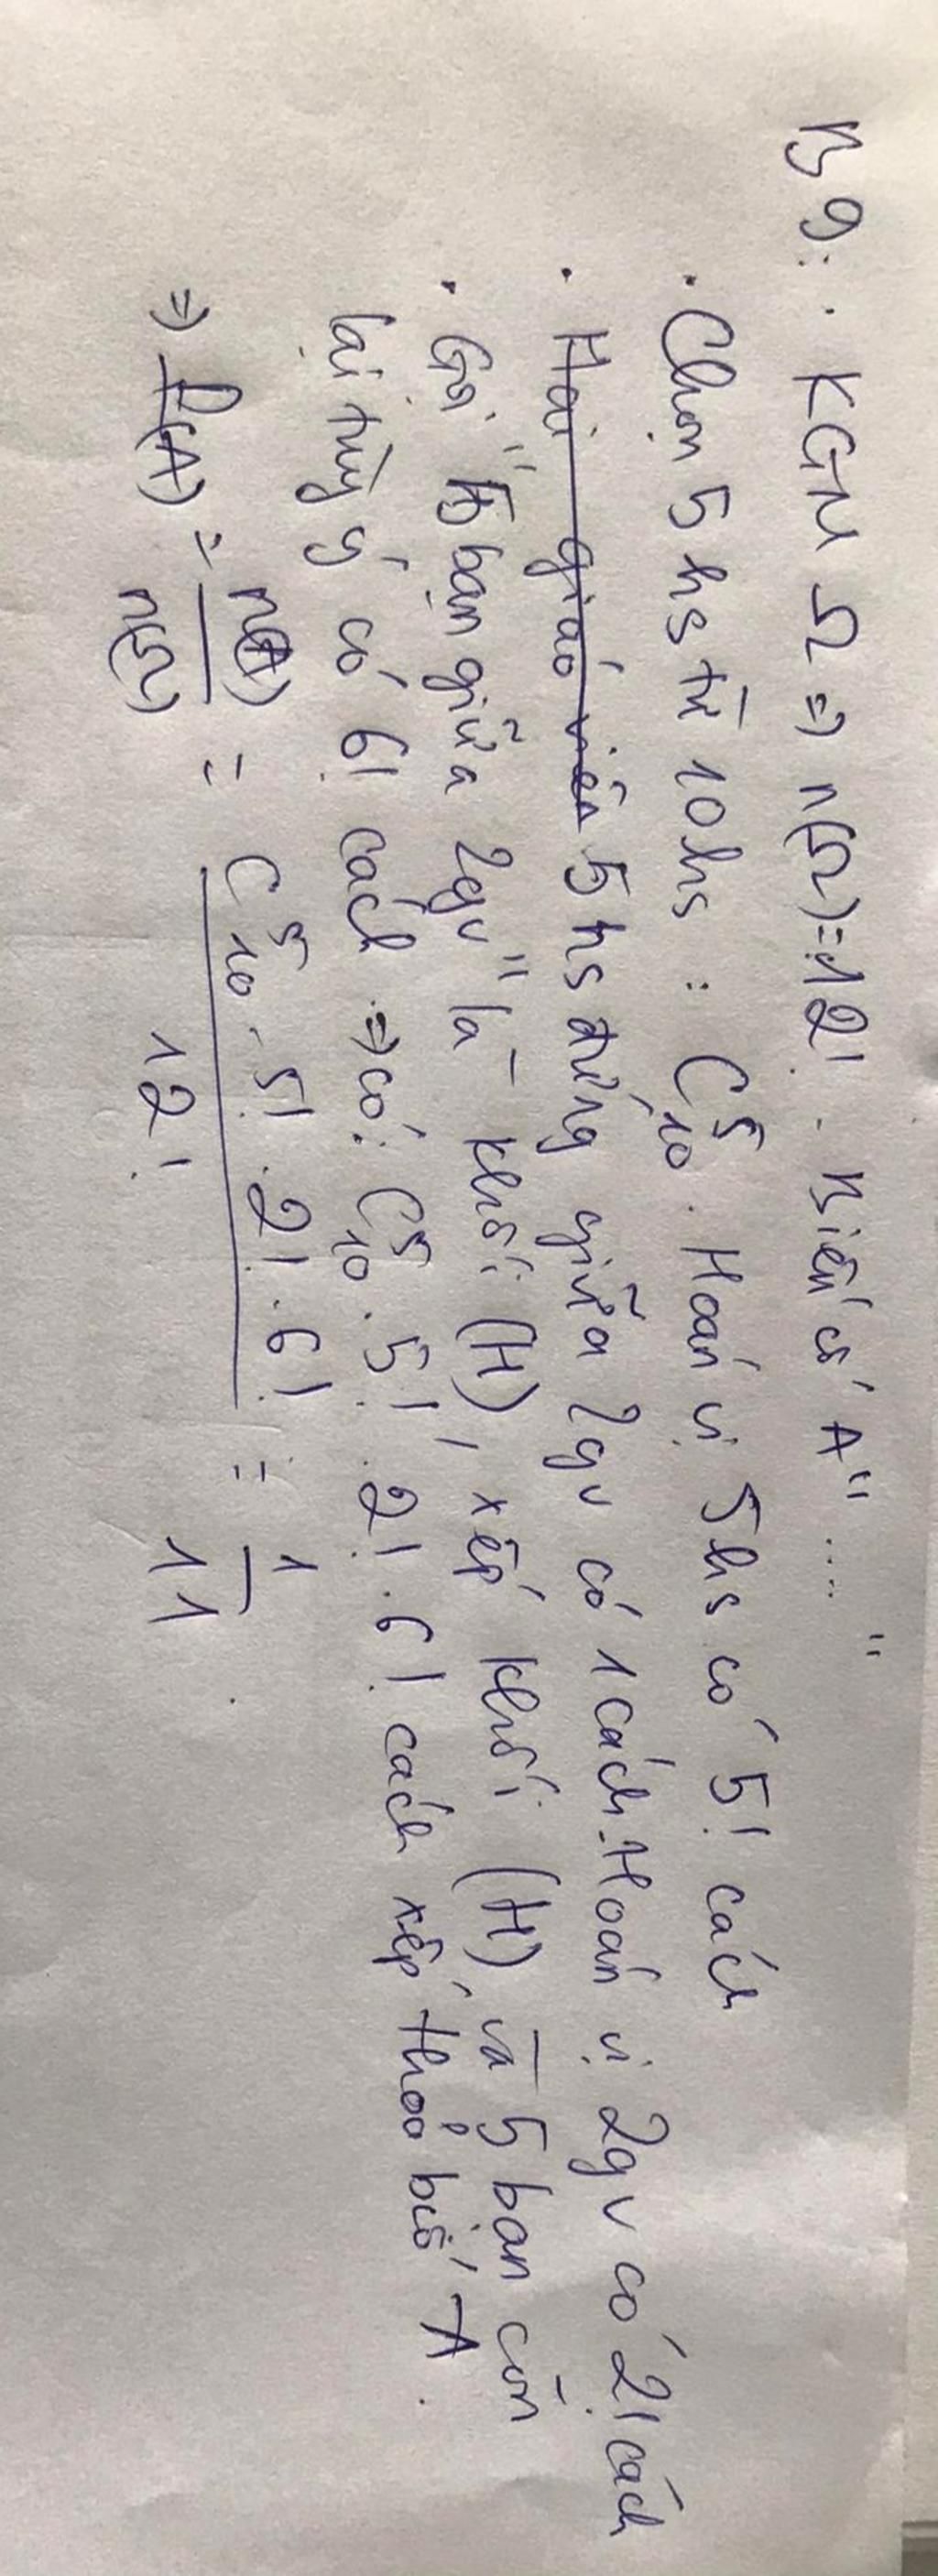 B9: . KGM Ω => n(Ω)=12! . Biến cố A "...."
. Chọn 5 hs từ 10hs : C⁵₁₀ . Hoán vị 5hs có 5! cách
. Hai giáo viên 5 hs đứng giữa 2gv có 1 cách. Hoán vị 2gv có 2! cách
. Gọi "5 bạn giữa 2gv" là khối (H), xếp khối (H) và 5 bạn còn
lại tùy ý có 6! cách => có: C⁵₁₀ . 5! . 2! . 6! cách xếp thoả bcố A.
=> P(A) = n(A)/n(Ω) = C⁵₁₀ . 5! . 2! . 6! / 12! = 1/11 .